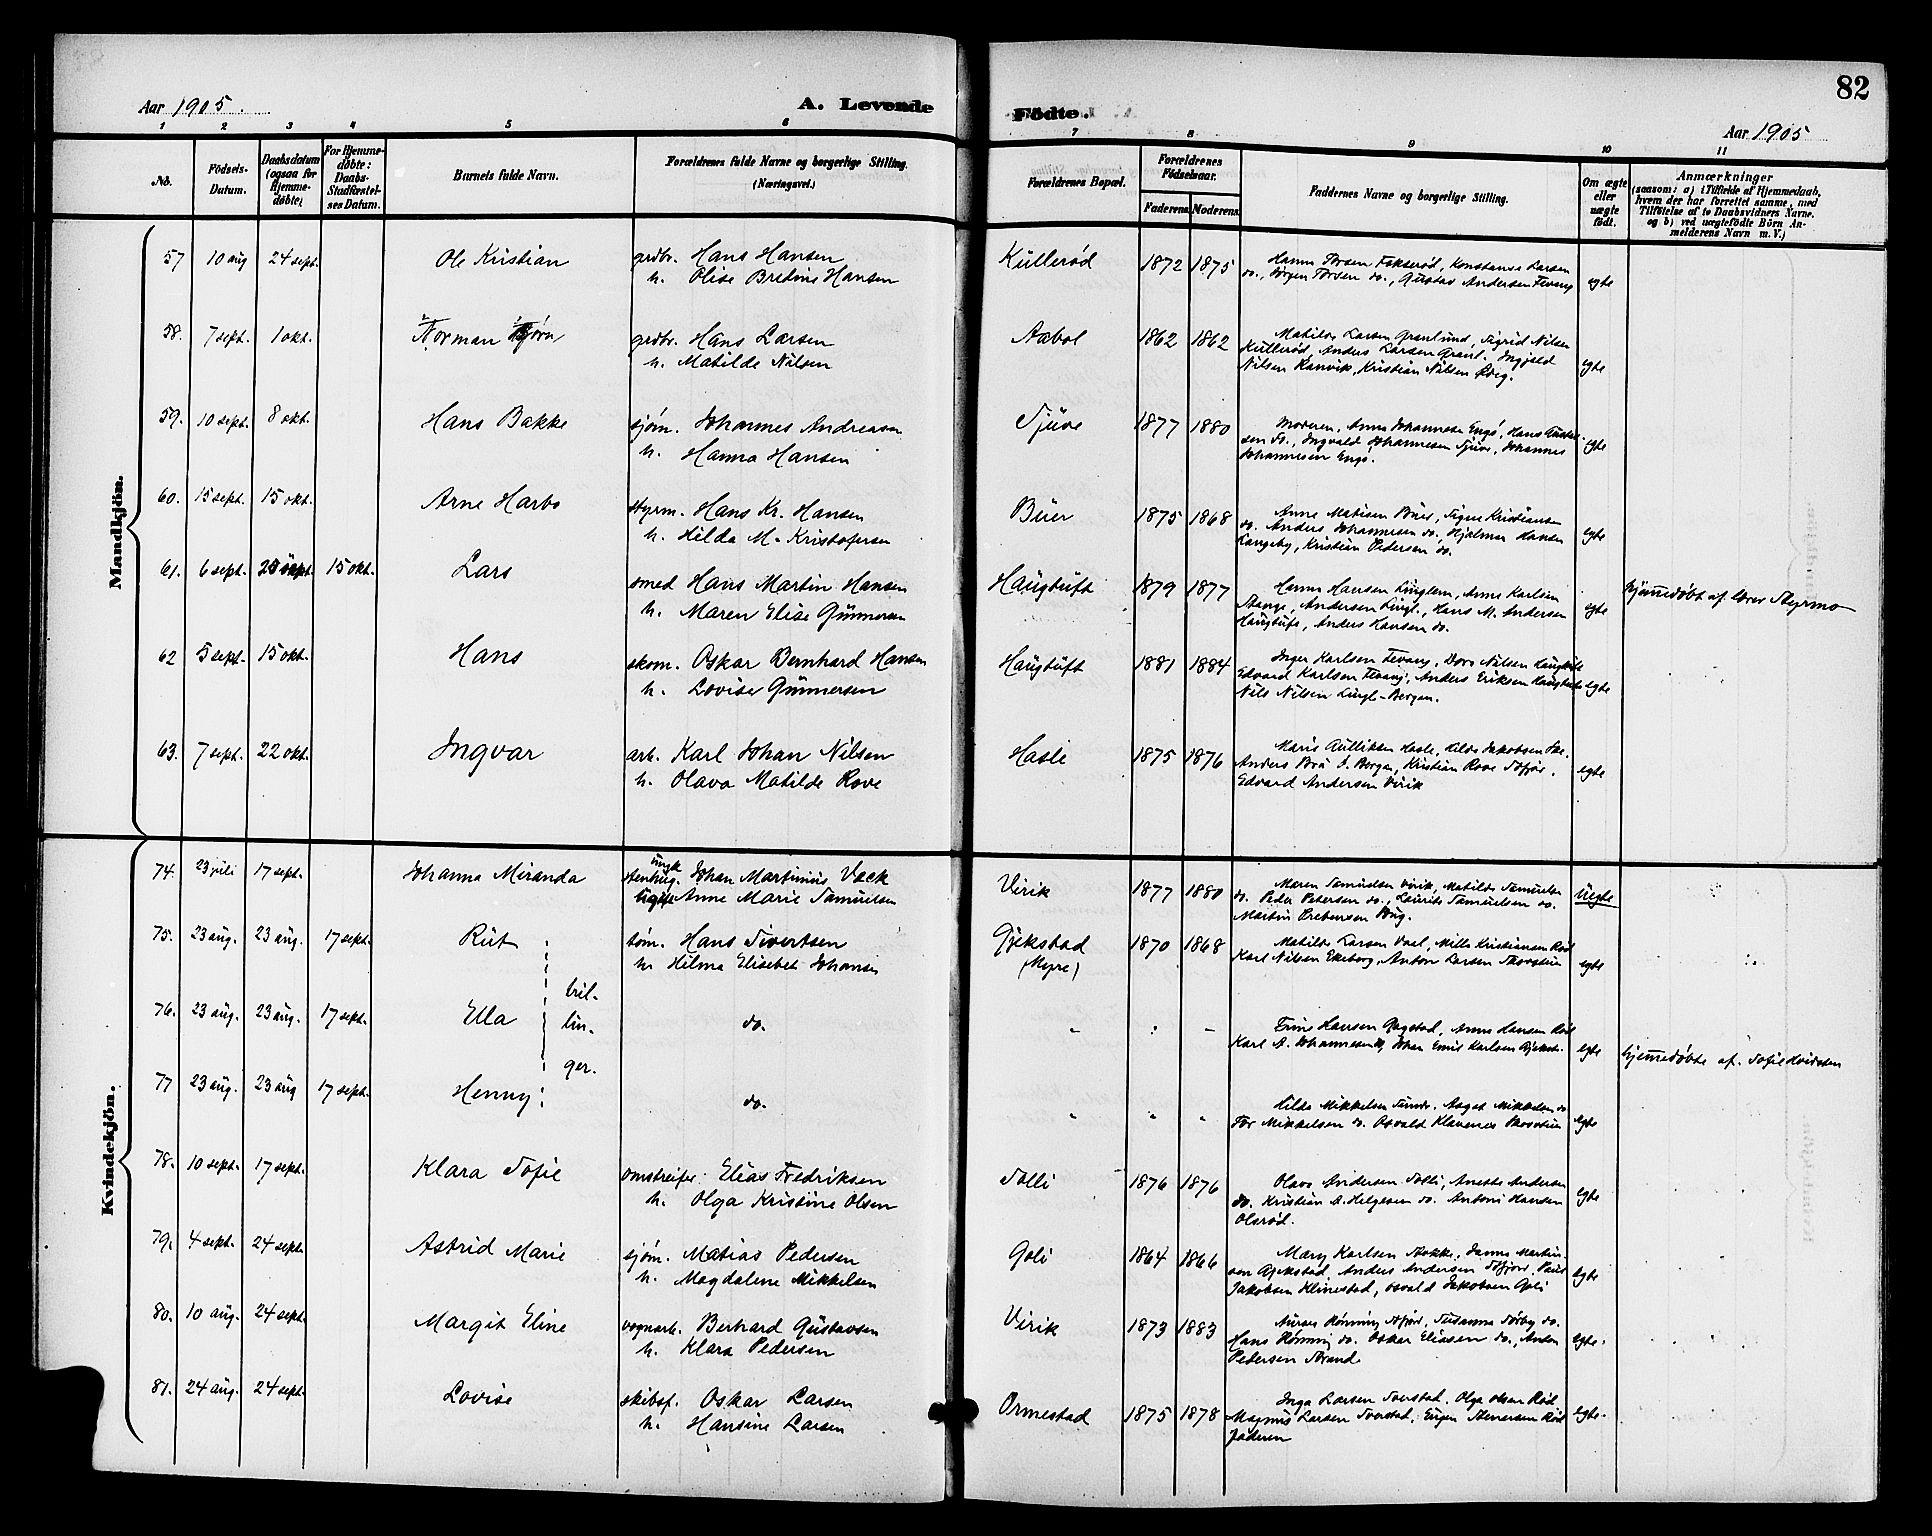 82
Aar 1905.
A. Levende
Födte.
Aar 1905
1 2 3 4 5 6 7 8 9 10 11
No.
Födsels-
Datum.
Daabsdatum
(ogsaa for
Hjemme-
døbte)
For Hjemme-
døbte:
Daabs-
Stadfæstel-
ses Datum.
Barnets fulde Navn.
Forældrenes fulde Navne og borgerlige Stilling.
(Næringsvei.)
Forældrenes Bopæl.
Forældrenes
Födselsaar.
Faderens Moderens
Faddernes Navne og borgerlige Stilling.
Om ægte
eller
uægte
födt.
Anmærkninger
(saasom: a) i Tilfælde af Hjemmedaab,
hvem der har forrettet samme, med
Tilföielse af to Daabsvidners Navne.
og b) ved uægtefödte Börn An-
melderens Navn m. V.)
Mandkjön.
57 10 aug 24 sept. Ole Kristian grdbr. Hans Hansen
h. Olise Bretine Hansen
Küllerød 1872 1875 Hanna Thorsen Fokserød, Konstanse Larsen
do., Jørgen Torsen do., Gustav Andersen Fevang egte
58. 7 sept. 1 okt. Norman Bjørn grdbr. Hans Larsen
h. Matilde Nilsen
Aabol 1862 1862 Matilde Larsen Grønlund, Sigrid Nilsen
Küllerød, Anders Larsen Grønl. Ingjald
Nilsen Ranvik, Kristian Nilsen egte
59. 10 sept. 8 okt. Hans Bakke sjøm. Johannes Andreasen
h. Hanna Hansen
Tjüve 1877 1880 Moderen, Anna Johannesen Engø, Hans
sen do., Ingvald Johannesen Tjüve, Johannes
Johannesen Engø. egte
60. 15 sept. 15 okt. Arne Harbo styrm. Hans Kr. Hansen
h. Hilda M. Kristofersen
Büer 1875 1868 Anne Matisen Büer, Signe Kristiansen
do. Anders Johannesen do., Hjalmar Hansen
Langeby, Kristian Pedersen do. egte
61. 6 sept. 15 okt. Lars smed Hans Martin Hansen
h. Maren Elise Günnersen
Haügtüft 1879 1877 Hanna Hansen Lingelem, Anna Karlsen
Stange, Andersen Lingl., Hans M. Andersen
Haügtüft, Anders Hansen do. egte hjemmedøbt af lærer Styrmo
62 5 sept. 15 okt. Hans skom. Oskar Bernhard Hansen
h. Lovise Günnersen
Haügtüft 1881 1884 Inger Karlsen Fevang, Dora Nilsen Haügtüft
Edvard Karlsen Fevang, Anders Eriksen Haügtüft
Nils Nilsen Lingl-Bergan. egte
63. 7 sept. 22 okt. Ingvar arb. Karl Johan Nilsen
h. Olava Matilde Rove
Hasle 1875 1876 Marie Gulliksen Hasle, Hilda Jakobsen
Anders Bergan, Kristian Rove Sdfjor.
Edvard Andersen Virik egte
Kvindekjön.
74. 23 juli 17 sept. Johanna Miranda ungk
stenhug. Johan Martinius Vack
Anne Marie Samuelsen
Virik 1877 1880 Maren Samuelsen Virik, Matilde Samuelsen
do. Peder Petersen do., Laurits Samuelsen do.
Martin Prebensen Büg. Uegte
75. 23 aug. 23 aug. 17 sept. Rüt tøm. Hans Sivertsen
h. Hilma Elisebet Johansen
Gjekstad
(Myre) 1870 1868 Matilde Larsen Vael, Mille Kristiansen Rød
Karl Nilsen Ekeberg, Anton Larsen egte
tril-
lin-
ger.
76. 23 aug. 23 aug. 17 sept. Ella do.
" " " Trine Hansen Gogstad, Anna Hansen Rød
Karl A. Johannesen, Johan Emil Karlsen Gjekst. egte hjemmedøbte af Sofie Hvidsten
77 23 aug. 23 aug 17 sept. Henny do.
" " " Hilda Mikkelsen Sunde, Aagot Mikkelsen do
Tor Mikkelsen do. Osvald Klavenes egte
78. 10 sept. 17 sept. Klara Sofie omstreifer Elias Fredriksen
h. Olga Kristine Olsen
Solli 1876 1876 Olava Andersen Solli, Anette Andersen
do. Kristian A. Helgesen do. Antoni Hansen
Olsrød. egte
79. 4 sept. 24 sept. Astrid Marie sjøm. Matias Pedersen
h. Magdalene Mikkelsen
Goli 1864 1866 Mary Karlsen Stokke. Martin-
sen Gjekstad, Anders Andersen Sdfjor, Paul
Jakobsen Klinestad, Osvald Jakobsen Goli egte
80. 10 aug. 24 sept. Margit Eline vognarb. Berhard Güstavsen
h. Klara Pedersen
Virik 1873 1883 Rønning Sdfjor, Susanna Sørby do.
Hans Rønning do. Oskar Eliassen do., Anton
Pedersen Strand. egte.
81. 24 aug. 24 sept. Lovise skibsf. Oskar Larsen
h. Hansine Larsen
Ormestad 1875 1878 Inga Larsen Sverstad, Olga Olsen Rød
Magnus Larsen Sverstad, Eugen Stenersen Rød
Faderen egte.